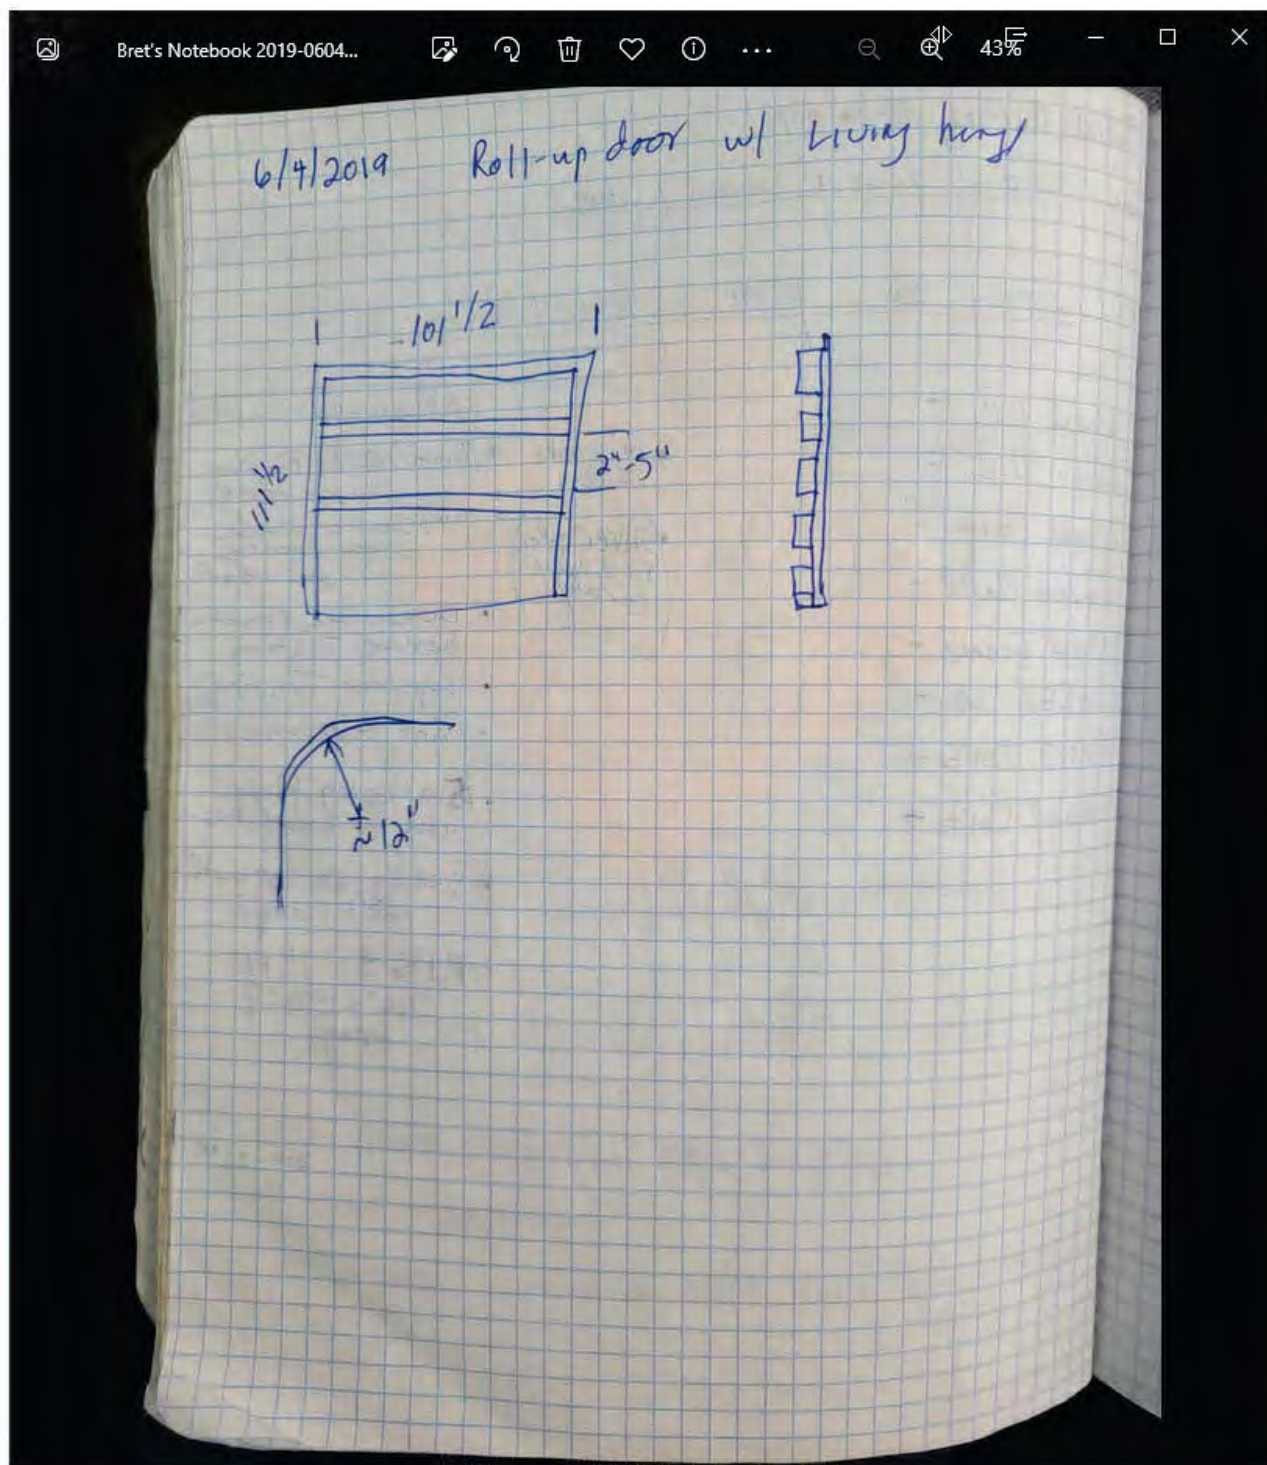 Bret's Notebook 2019-0604...
43%
6/4/2019 Roll-up door w/ Living
101 1/2
111 1/2
2"-5"
≈ 12"